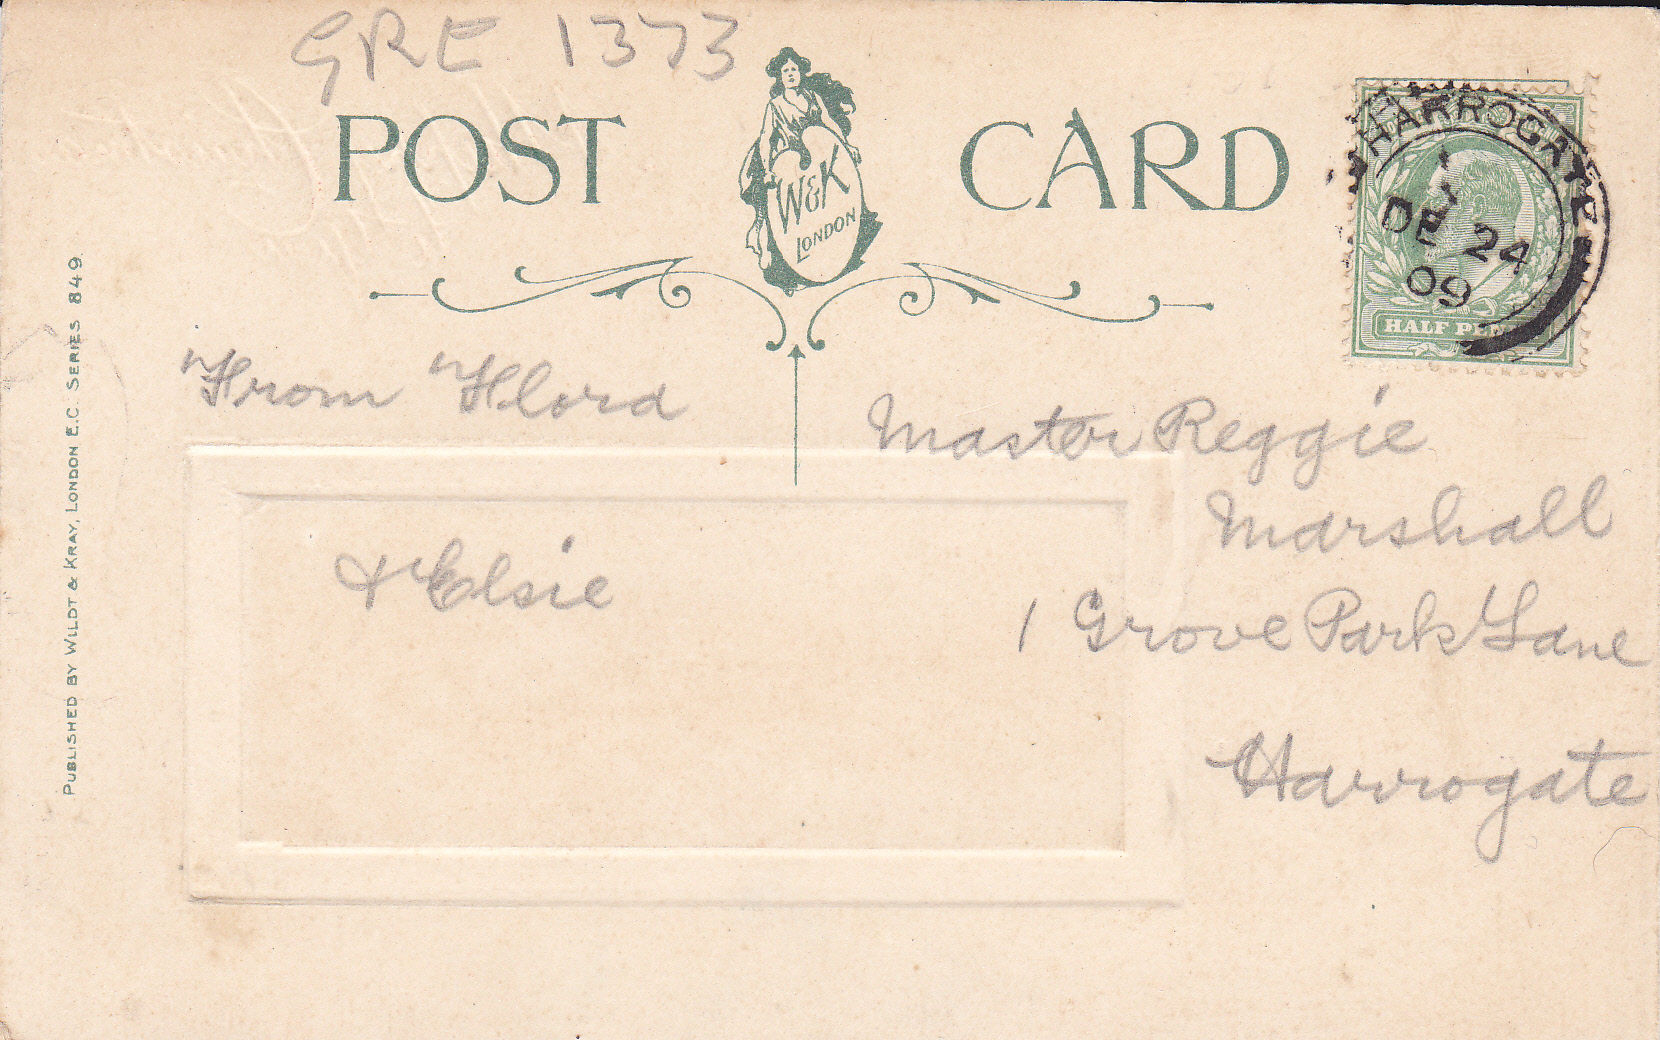 GRE 1373
POST CARD
W&K
LONDON
HARROGATE
DE 24
09
HALF PENNY
PUBLISHED BY WILDT & KRAY, LONDON E.C. SERIES 849.
From Flord
& Elsie
Master Reggie
Marshall
1 Grove Park Lane
Harrogate